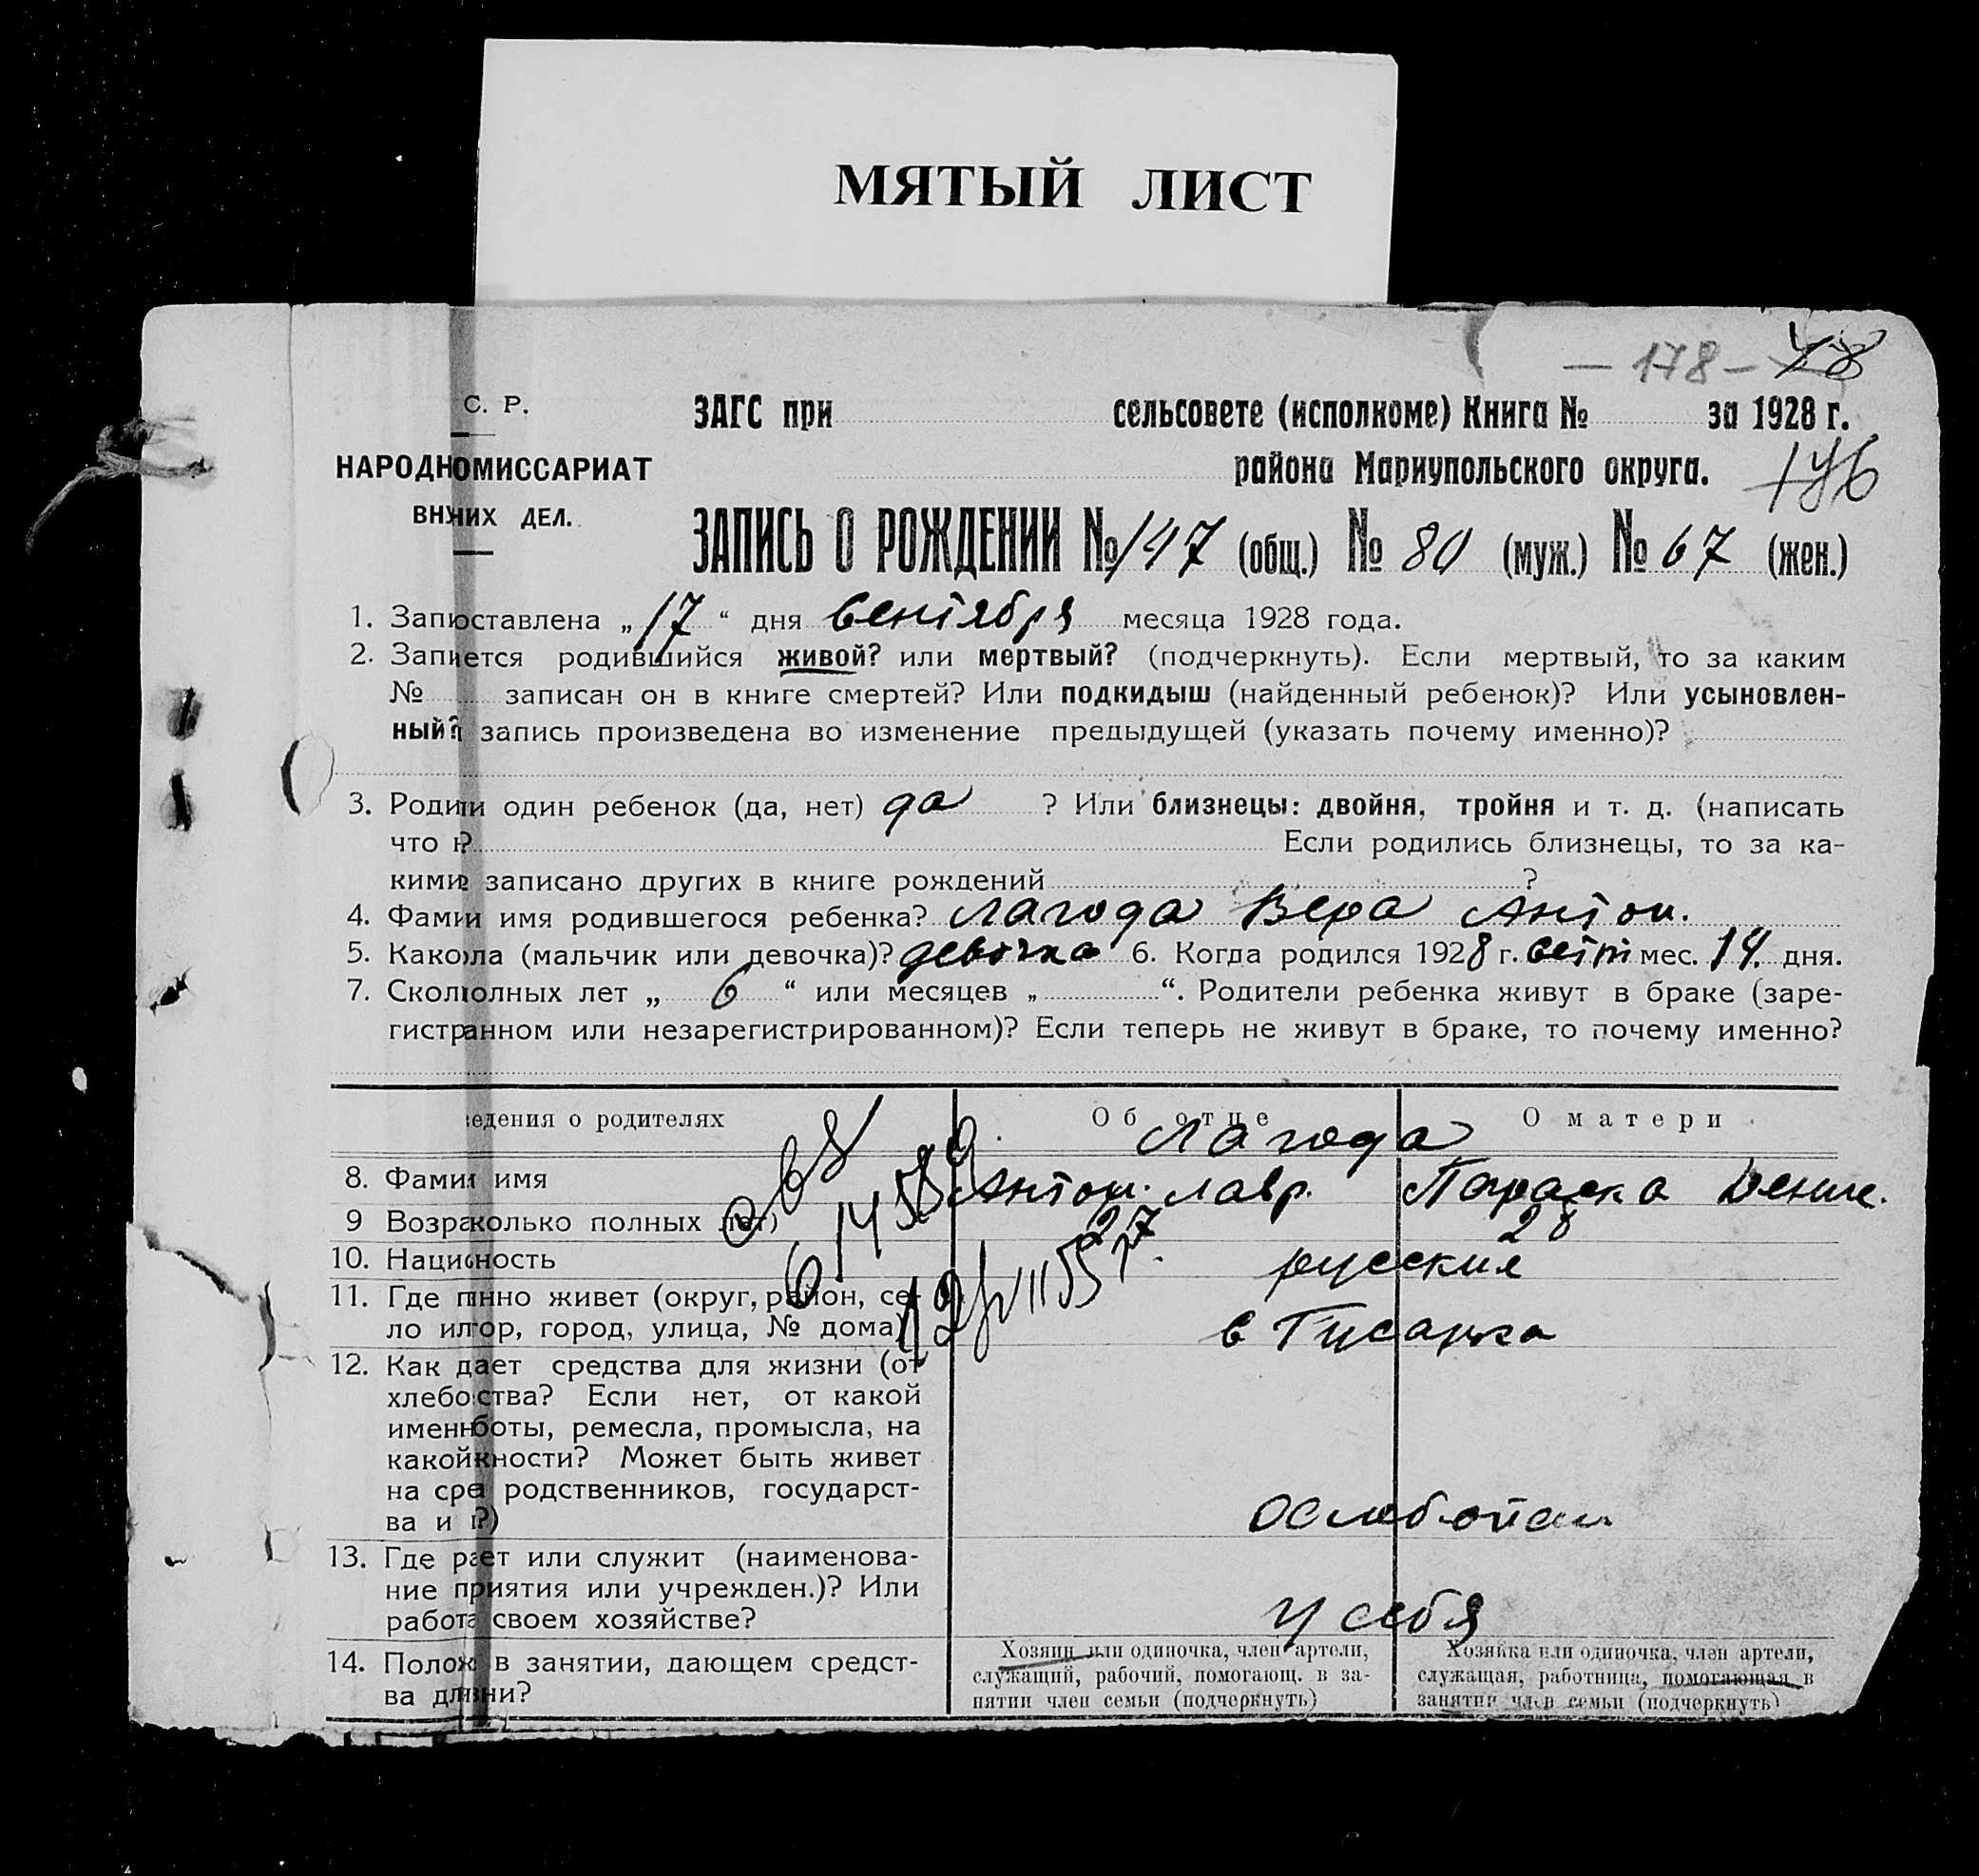 МЯТЫЙ ЛИСТ
— 178 —
С. Р. ЗАГС при сельсовете (исполкоме) Книга № за 1928 г.
НАРОДНОМИССАРИАТ района Мариупольского округа.
ВНУНИХ ДЕЛ.
ЗАПИСЬ О РОЖДЕНИИ № 147 (общ.) № 80 (муж.) № 67 (жен.)
1. Запюставлена „ 17 “ дня Сентября месяца 1928 года.
2. Запиется родившийся живой? или мертвый? (подчеркнуть). Если мертвый, то за каким
№ записан он в книге смертей? Или подкидыш (найденный ребенок)? Или усыновлен-
ный? запись произведена во изменение предыдущей (указать почему именно)?
3. Родии один ребенок (да, нет) да ? Или близнецы: двойня, тройня и т. д. (написать
что ? Если родились близнецы, то за ка-
ким записано других в книге рождений ?
4. Фами и имя родившегося ребенка? Лагода Вера Антон.
5. Какола (мальчик или девочка)? девочка 6. Когда родился 1928 г. мес. 14. дня.
7. Скололных лет „ 6 “ или месяцев „ “. Родители ребенка живут в браке (заре-
гистранном или незарегистрированном)? Если теперь не живут в браке, то почему именно?
едения о родителях Об отце О матери
Лагода
8. Фами имя Антон. Лавр. Параска Дениc.
9 Возраколько полных лет) 27 28
10. Национость русские
11. Где пнно живет (округ, район, се-
ло илгор, город, улица, № дома) в
12. Как дает средства для жизни (от
хлебоства? Если нет, от какой
именнботы, ремесла, промысла, на
какойкности? Может быть живет
на сре родственников, государст-
ва и ?)
13. Где рает или служит (наименова-
ние приятия или учрежден.)? Или
работа своем хозяйстве? у себя
14. Полож в занятии, дающем средст-
ва дляни?
Хозяин или одиночка, член артели,
служащий, рабочий, помогающ. в за-
нятии член семьи (подчеркнуть)
Хозяйка или одиночка, член артели,
служащая, работница, помогающая в
занятии член семьи (подчеркнуть)